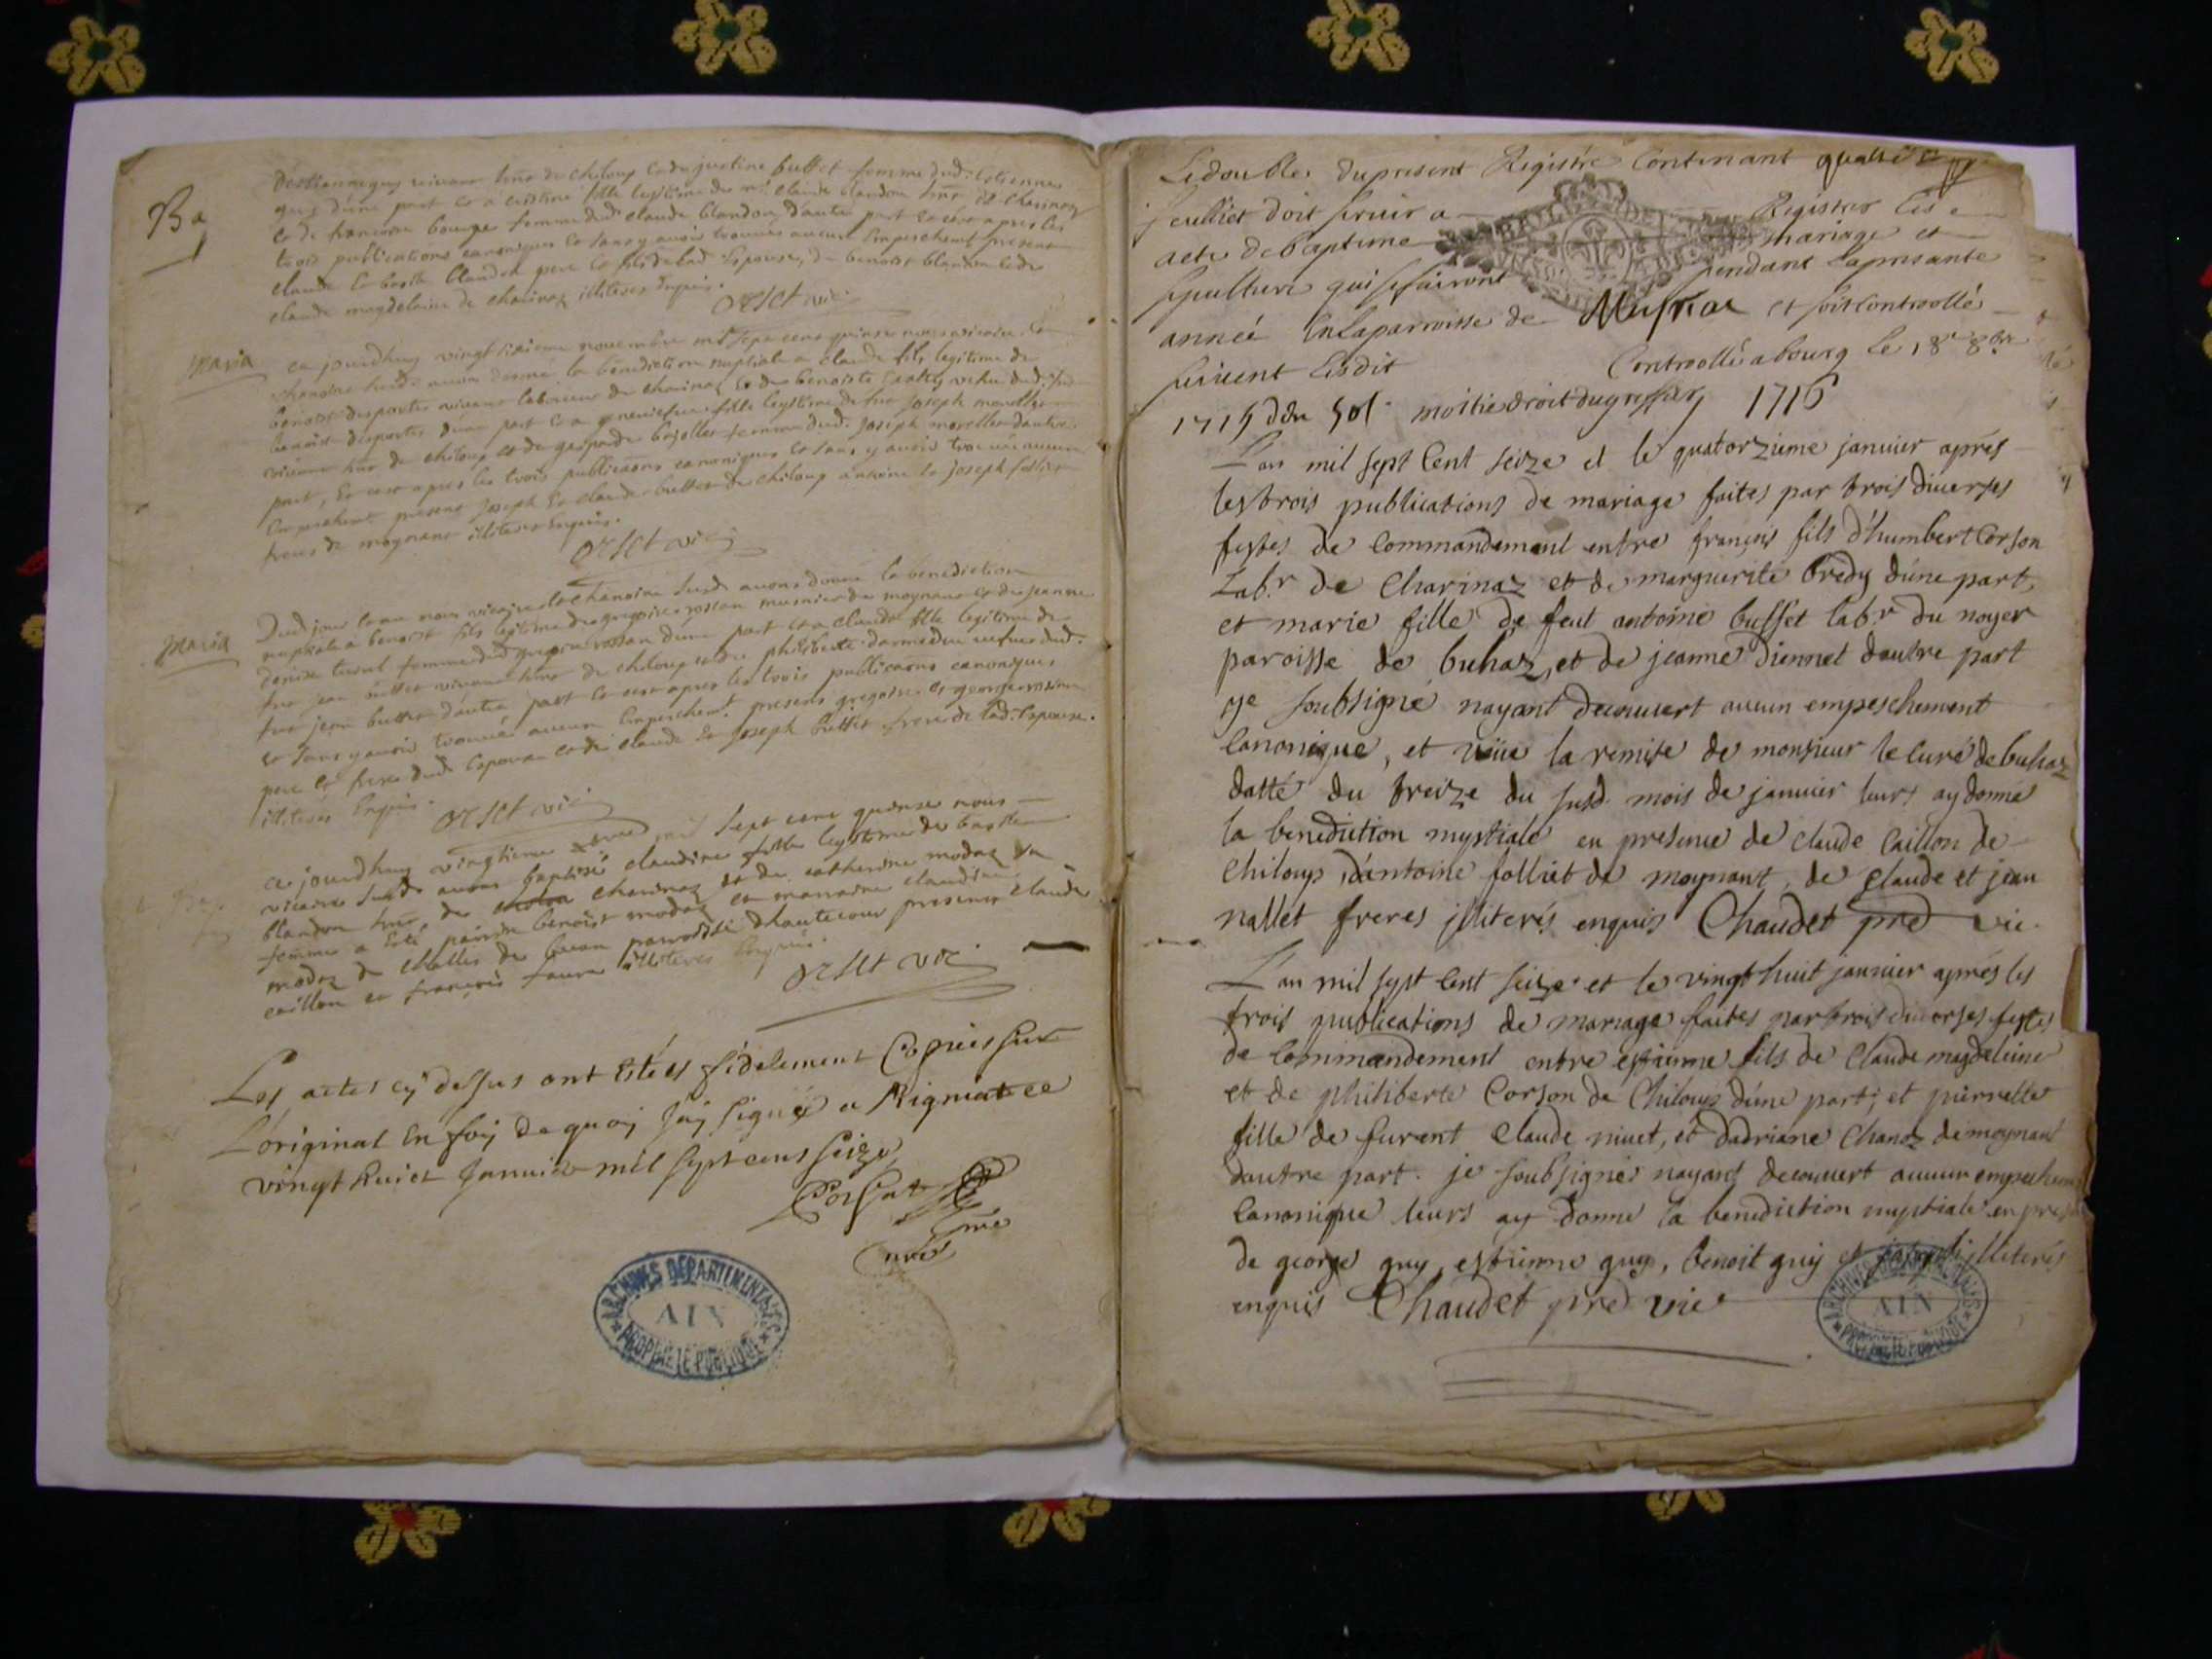 Ba
d'estienne guy vivant hnr de chiloup et de justine buffet femme dud. estienne
guy d'une part et a cristine fille legitime de mr claude blandon hnr de charinaz
et de francoise bourge femme dud. claude blandon d'autre part et ce apres les
trois publications canoniques et sans y avoir trouvé aucun empeschemt presens
claude et basth blandon pere et fils de lad. espouse, de benoist blandon et de
claude magdelaine de charinaz illiteres enquis.
orset vic
maria
ce jourdhuy vingt sixieme novembre mil sept cens quinze nous vicaire et
chanoine susd. avons donné la benediction nuptiale a claude fils legitime de
benoist desportes vivant laboureur de charinaz et de benoiste
benoist desportes d'une part et a genevieve fille legitime de feu joseph morellet
vivant hnr de chiloup et de gasparde bajollet femme dud. joseph morellet d'autre
part, et ce apres les trois publicaons canoniques et sans y avoir trouvé aucun
empeschemt presens joseph et claude buffet de chiloup antoine et joseph folliet
freres de moynant illiteres enquis.
orset vic
maria
Dud jour et an nous vicaire et chanoine susd. avons donné la benediction
nuptiale a benoist fils legitime de gregoire rossan musnier de moynant et de jeanne
denise femme dud. gregoire rossan d'une part et a claude fille legitime de
feu jean buffet vivant hnr de chiloup et de philiberte vefve dud.
feu jean buffet d'autre part et ce apres les trois publicaons canoniques
et sans y avoir trouvé aucun empeschemt presens gregoire et george rossan
pere et frere dud. espoux et de claude et joseph buffet freres de lad. espouse.
illiteres enquis.
orset vic
ce jourdhuy vingtieme xbre mil sept cens quinze nous
vicaire susd. avons baptisé claudine fille legitime de basthe
blandon hnr de charinaz et de catherine modaz sa
femme a esté parrin benoist modaz et marraine claudine
modaz de challes de paroisse dhautecour presens claude
caillon et françois faure illiteres enquis.
orset vic
Les actes cy dessus ont estées fidelement Copiées sur
L'original En foy de quoy J'ay Signé a Rigniat ce
vingt huict Janvier mil sept cens Seize
Curé
ARCHIVES DEPARTEMENTALES
AIN
PROPRIÉTÉ PUBLIQUE
Le double du present Registre Contenant quattre
feulliet doit servir a Registrer les
acte de bapteme mariage et
sepulture qui se fairont pendant la presante
année en la parroisse de et soit controollé
suivent Ledit Controollé a bourg le 18e 8bre
1715 sol moitie droit du greffier 1716
L'an mil sept Cent seize et le quatorzieme janvier aprés
les trois publications de mariage faites par trois diverses
festes de Commandement entre françois fils d'humbert Corson
Labr de Charinaz et de marguerite bredy d'une part,
et marie fille de feut antoine buffet labr du noyer
paroisse de buhaz, et de jeanne diennet dautre part
je soubsigné nayant decouvert aucun empeschement
Canonique, et vüe la remise de monsieur le curé de buhaz
datté du treize du susd. mois de janvier leurs ay donné
la benediction nuptiale en presence de claude Caillon de
Chiloup, d'antoine folliet de moynant, de claude et jean
nallet freres jlliterés enquis Chaudet pre vic.
L'an mil sept Cent seize et le vingt huit janvier aprés les
trois publications de mariage faites par trois diverses festes
de Commandement entre estienne fils de Claude magdeleine
et de philiberte Corson de Chiloup d'une part; et pierrette
fille de furent Claude nivet, et dadriane Chanoz de moynant
dautre part. je soubsigné nayant decouvert aucun empeschem
Canonique leurs ay donné la benediction nuptiale en pres
de george guy, estienne guy, benoit guy et jlliterés
enquis Chaudet pre vic
ARCHIVES DEPARTEMENTALES
AIN
PROPRIÉTÉ PUBLIQUE